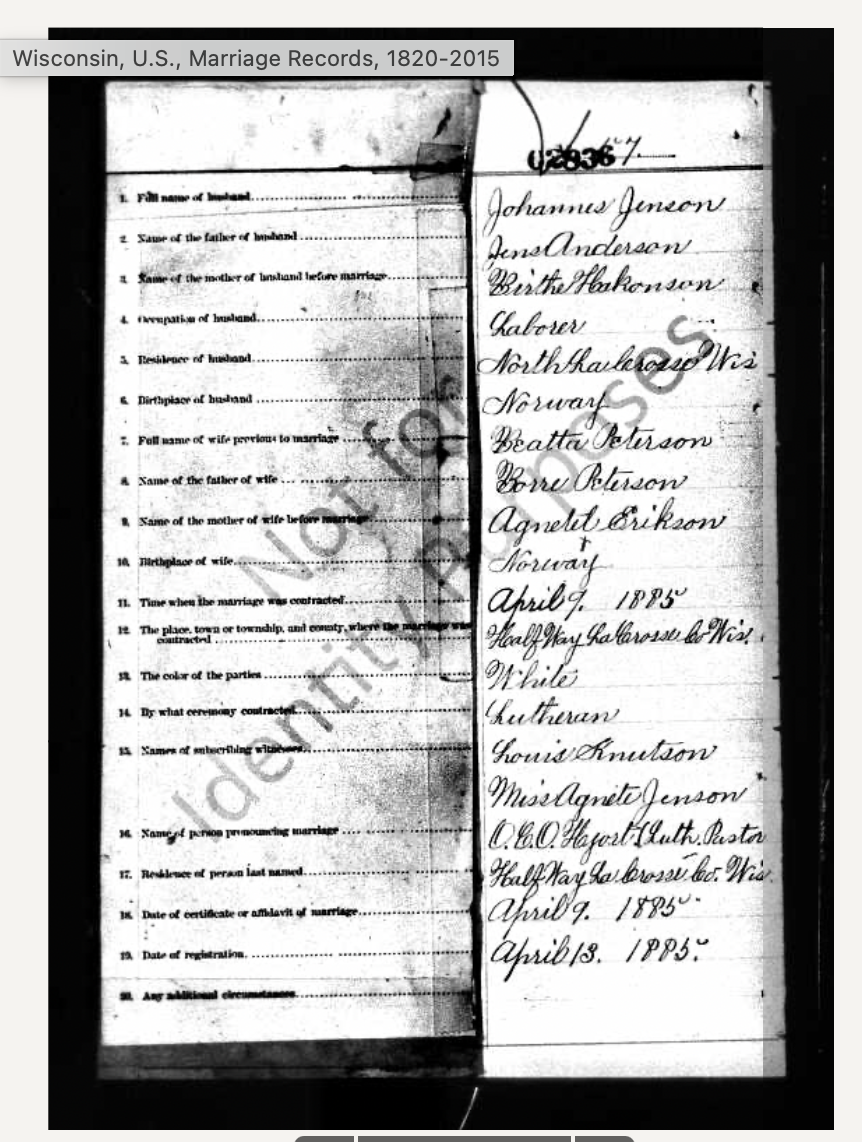 Wisconsin, U.S., Marriage Records, 1820-2015
02836 7
1. Full name of husband Johannes Jenson
2. Name of the father of husband Jens Anderson
3. Name of the mother of husband before marriage Birthe Hakonson
4. Occupation of husband Laborer
5. Residence of husband North La Crosse Wis
6. Birthplace of husband Norway
7. Full name of wife previous to marriage Beatta Peterson
8. Name of the father of wife Borre Peterson
9. Name of the mother of wife before marriage Agnetet Erikson
10. Birthplace of wife Norway
11. Time when the marriage was contracted April 9. 1885
12. The place, town or township, and county, where the marriage was
contracted Half Way La Crosse Co Wis.
13. The color of the parties White
14. By what ceremony contracted Lutheran
15. Names of subscribing witnesses Louis Knutson
Miss Agnete Jenson
16. Name of person pronouncing marriage O.C.O. Hjort Luth. Pastor
17. Residence of person last named Half Way La Crosse Co. Wis.
18. Date of certificate or affidavit of marriage April 9. 1885
19. Date of registration April 13. 1885.
20. Any additional circumstances
Not for
Identity Purposes